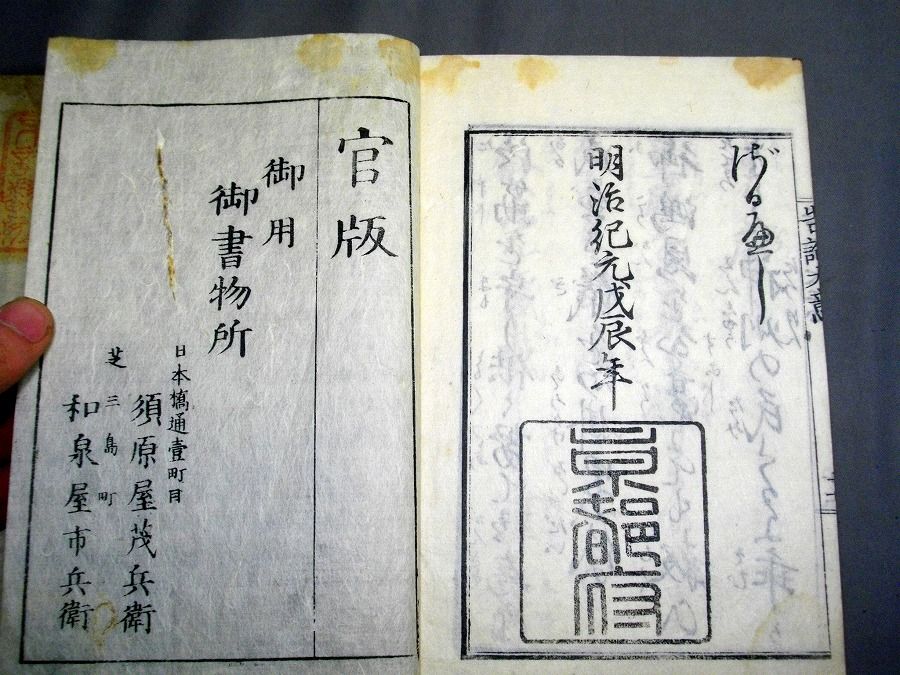 告諭大意
明治紀元戊辰年
京都府
官版
御用
御書物所
日本橋通壹町目
須原屋茂兵衛
芝三島町
和泉屋市兵衛